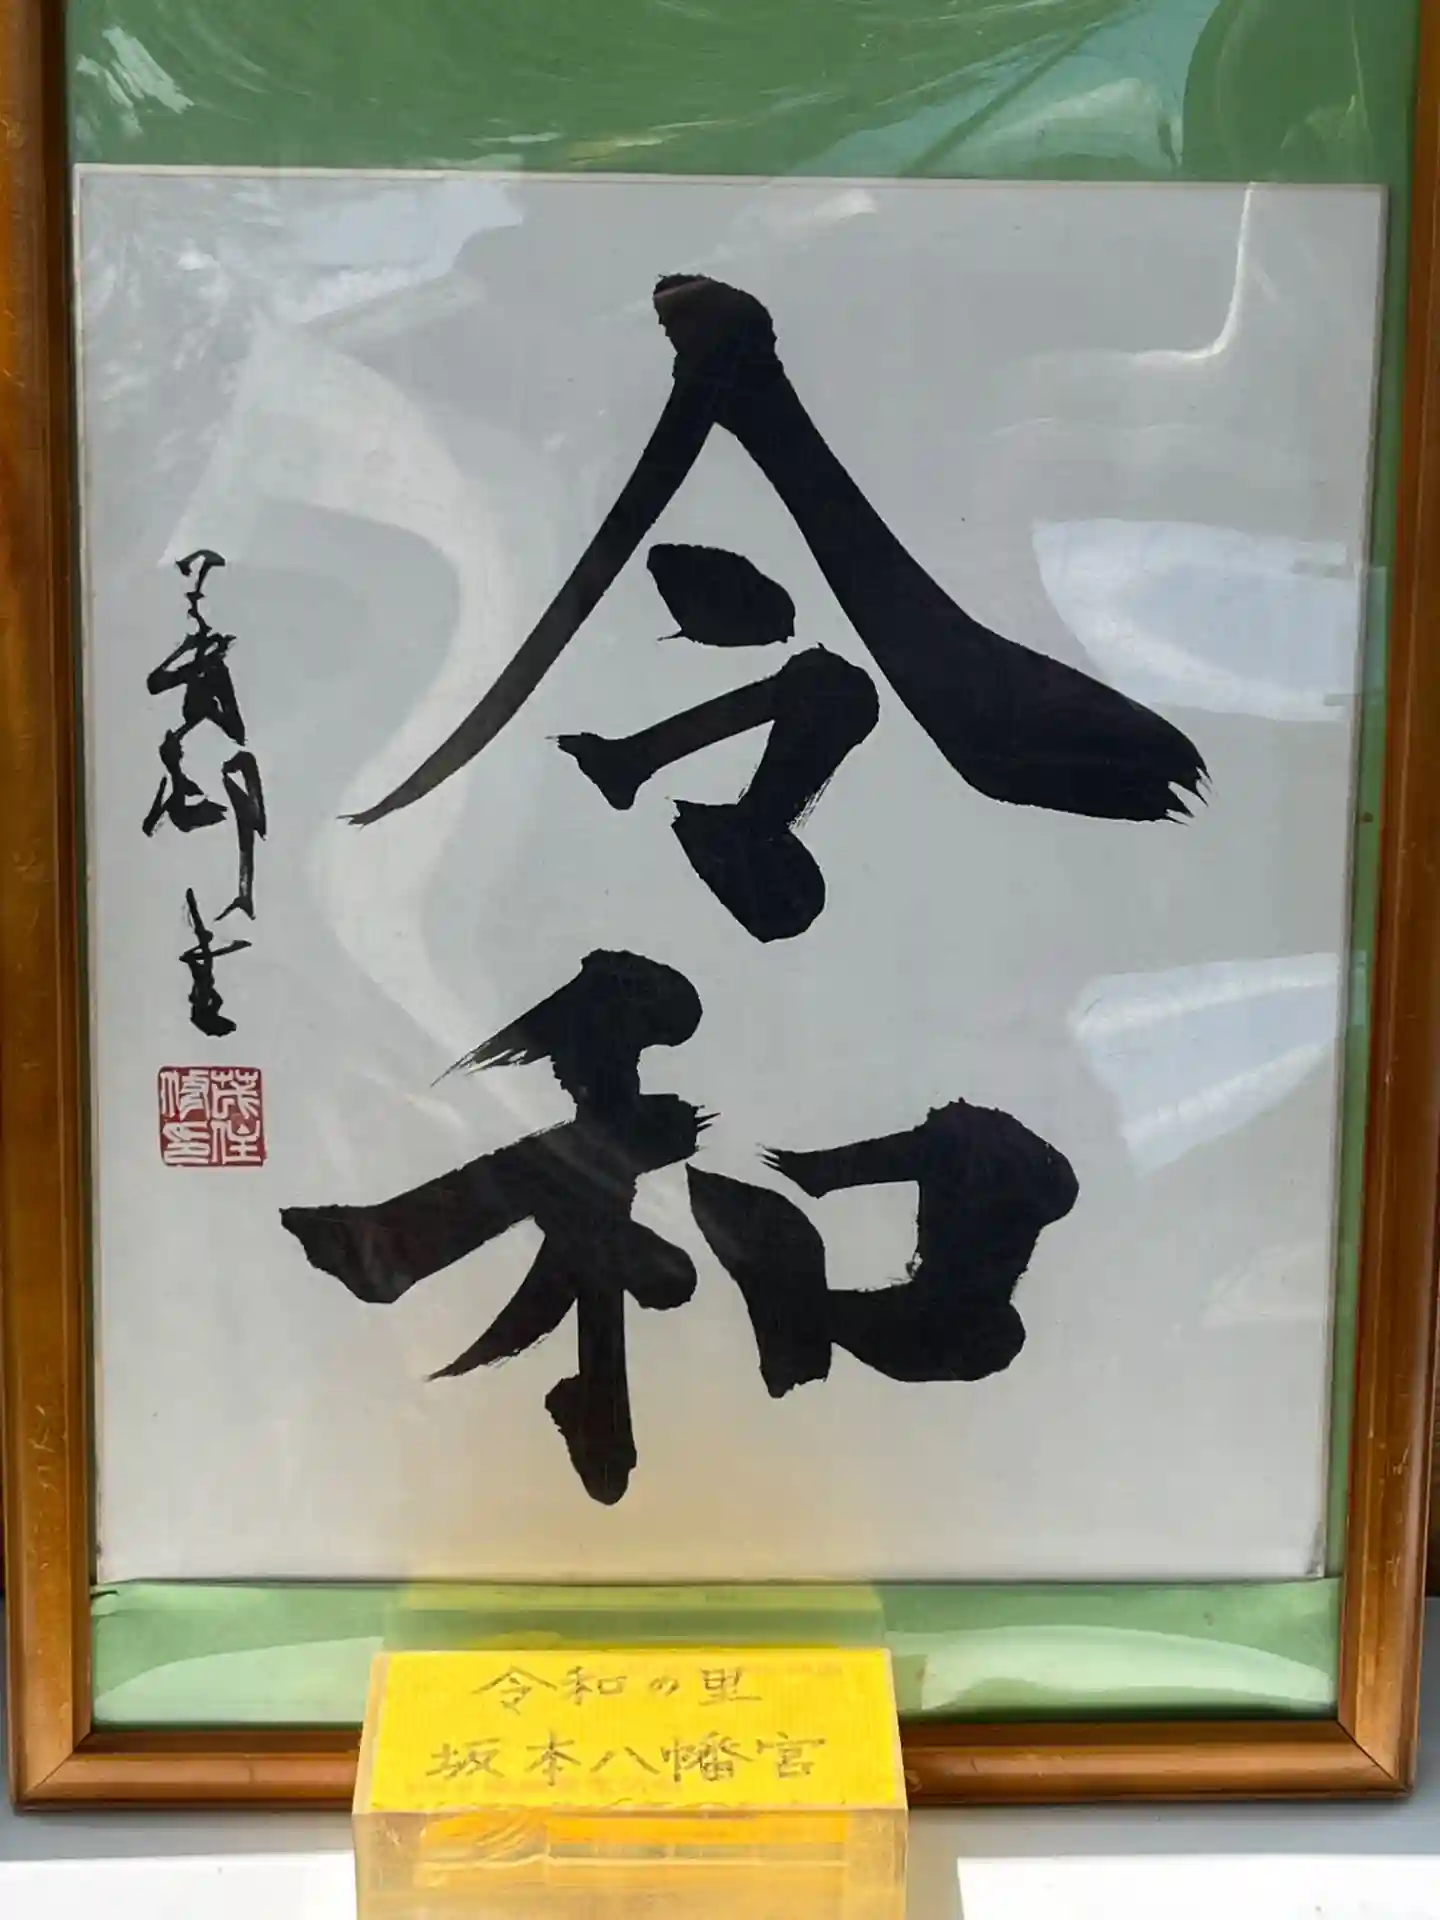 令和
令和の里
坂本八幡宮